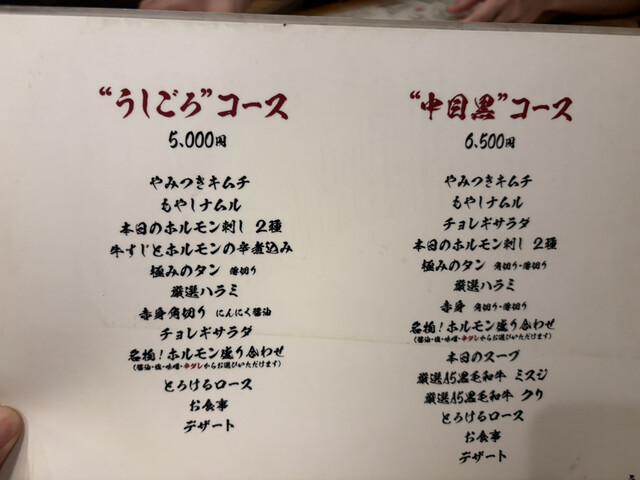 “うしごろ”コース
5,000円
やみつきキムチ
もやしナムル
本日のホルモン刺し 2種
牛すじとホルモンの辛煮込み
極みのタン 薄切り
厳選ハラミ
赤身角切り にんにく醤油
チョレギサラダ
名物!ホルモン盛り合わせ
(醤油・塩・味噌・辛ダレからお選びいただけます)
とろけるロース
お食事
デザート
“中目黒”コース
6,500円
やみつきキムチ
もやしナムル
チョレギサラダ
本日のホルモン刺し 2種
極みのタン 角切り・薄切り
厳選ハラミ
赤身 角切り・薄切り
名物!ホルモン盛り合わせ
(醤油・塩・味噌・辛ダレからお選びいただけます)
本日のスープ
厳選A5黒毛和牛 ミスジ
厳選A5黒毛和牛 クリ
とろけるロース
お食事
デザート